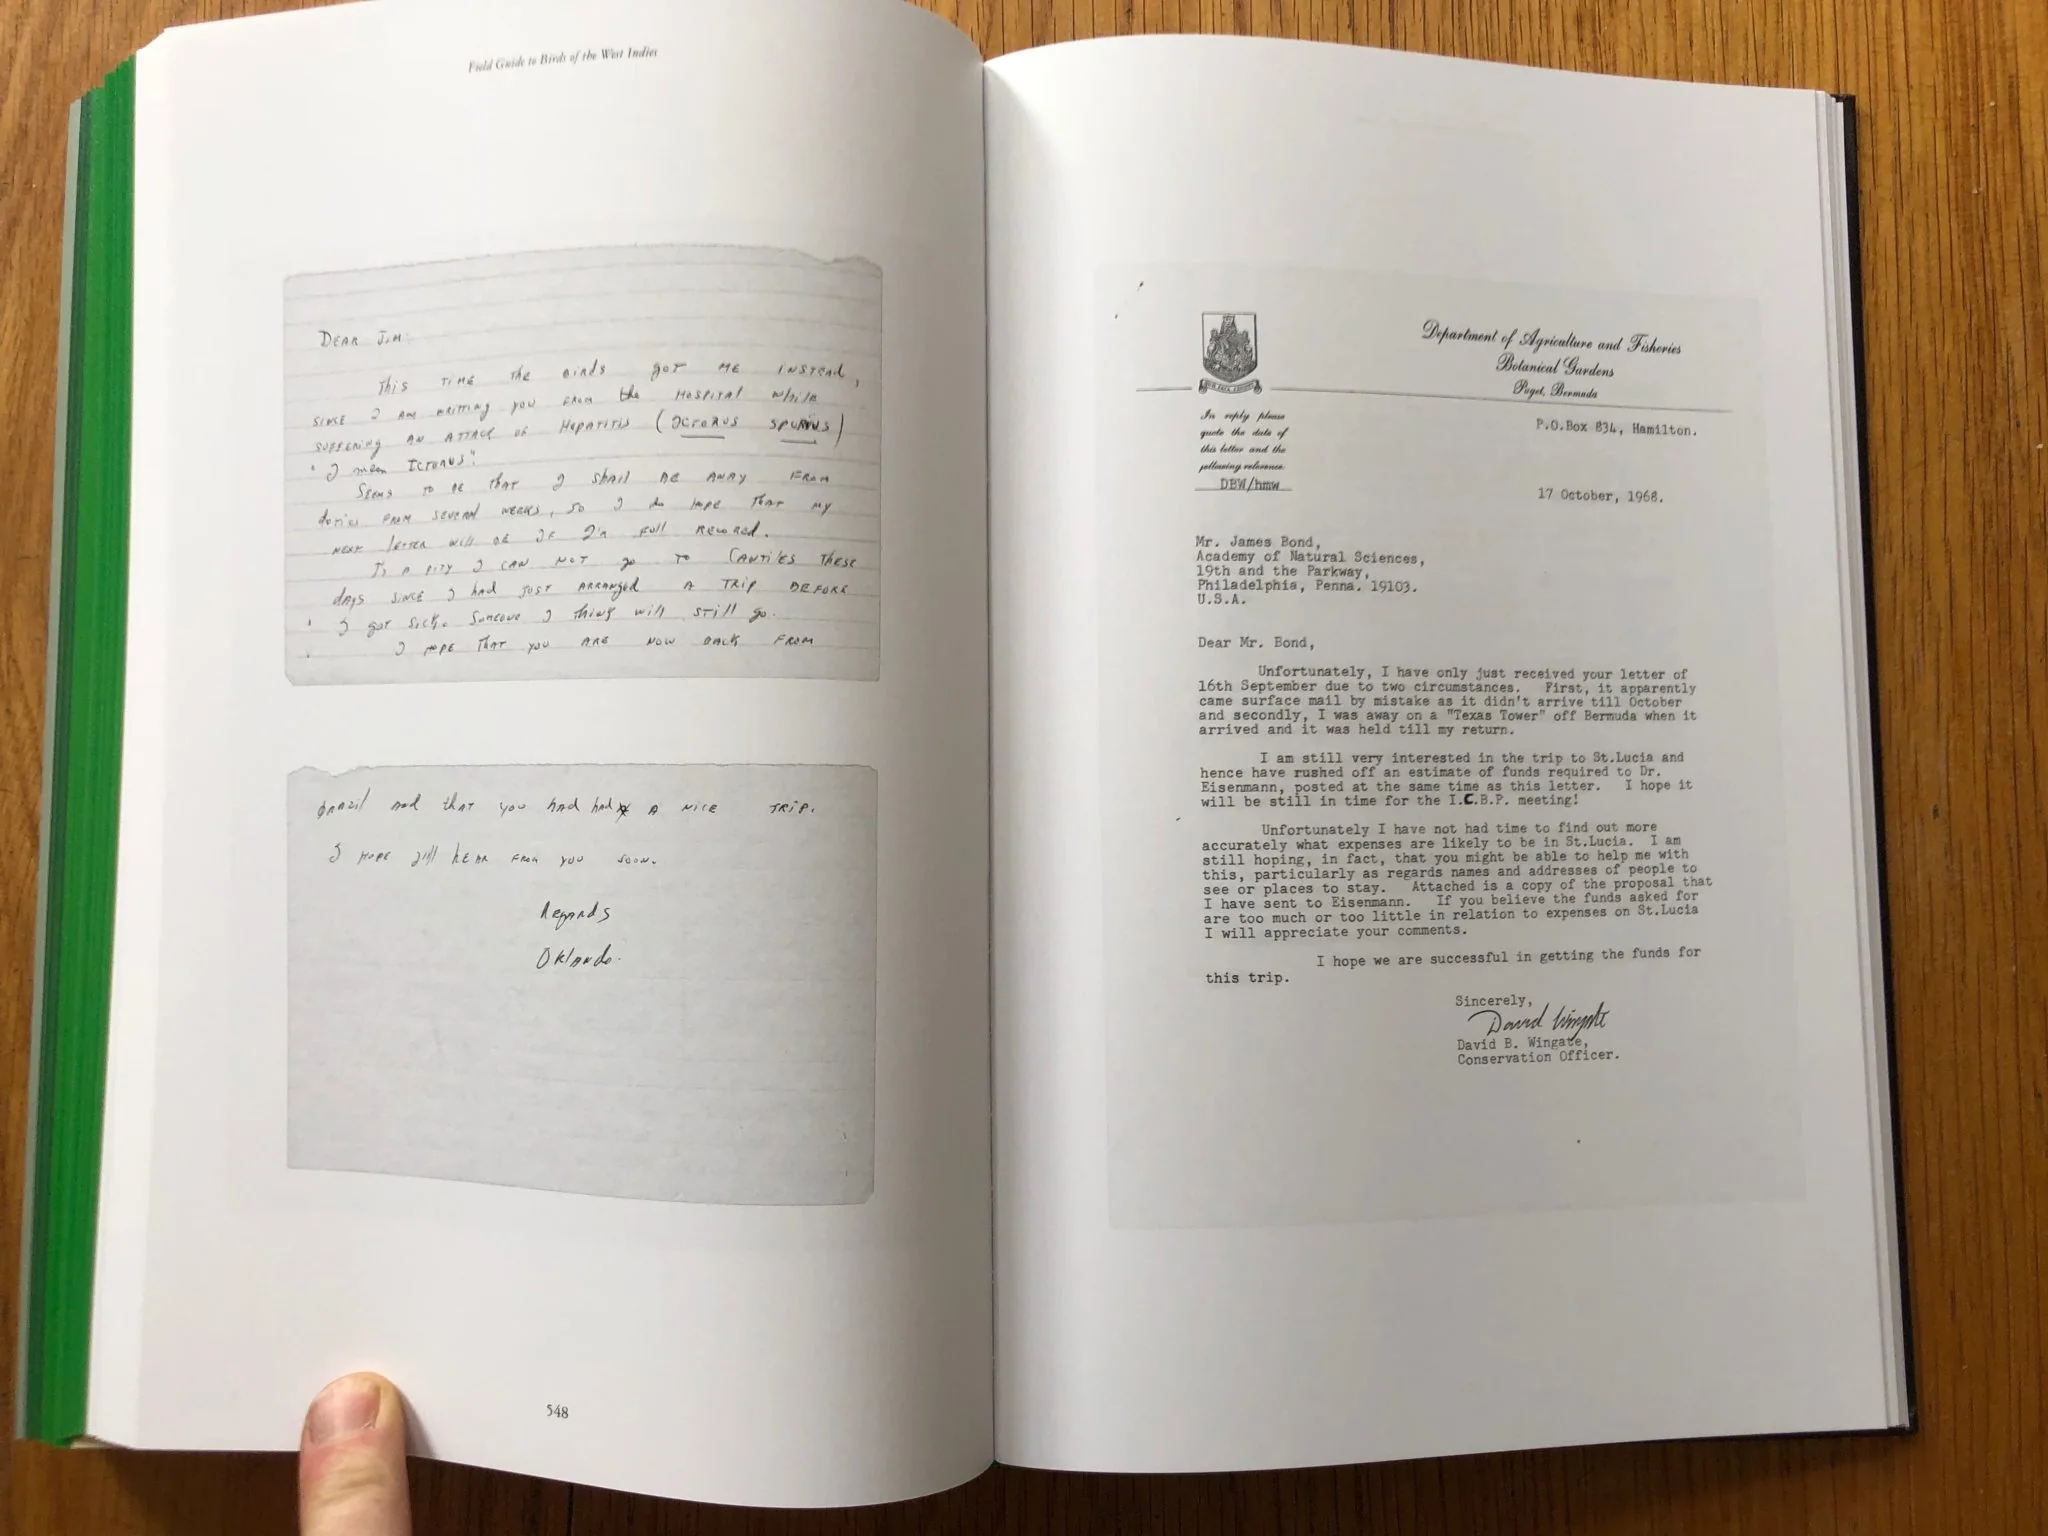 Field Guide to Birds of the West Indies
DEAR JIM:
This TIME THE BIRDS GOT ME INSTEAD,
SINCE I AM WRITTING YOU FROM the HOSPITAL While
SUFFERING AN ATTACK OF HEPATITIS (ICTERUS SPURIUS)
"I mean ICTERUS".
SEEMS TO BE that I shall BE AWAY FROM
duties FROM SEVERAL WEEKS, SO I do HOPE THAT MY
NEXT letter will BE IF I'm FULL
IS A PITY I CAN NOT go TO These
days SINCE I had JUST ARRANGED A TRIP BEFORE
I got SICK. SOMEONE I thing will STILL go.
I HOPE THAT you ARE NOW BACK FROM
BRAZIL AND that YOU HAD had A NICE TRIP.
I HOPE I'll hEAR FROM YOU SOON.
Regards
ORLANDO.
548
Department of Agriculture and Fisheries
Botanical Gardens
Paget, Bermuda
In reply please
quote the date of
this letter and the
following reference
DBW/hmw
P.O.Box 834, Hamilton.
17 October, 1968.
Mr. James Bond,
Academy of Natural Sciences,
19th and the Parkway,
Philadelphia, Penna. 19103.
U.S.A.
Dear Mr. Bond,
Unfortunately, I have only just received your letter of
16th September due to two circumstances. First, it apparently
came surface mail by mistake as it didn't arrive till October
and secondly, I was away on a "Texas Tower" off Bermuda when it
arrived and it was held till my return.
I am still very interested in the trip to St.Lucia and
hence have rushed off an estimate of funds required to Dr.
Eisenmann, posted at the same time as this letter. I hope it
will be still in time for the I.C.B.P. meeting!
Unfortunately I have not had time to find out more
accurately what expenses are likely to be in St.Lucia. I am
still hoping, in fact, that you might be able to help me with
this, particularly as regards names and addresses of people to
see or places to stay. Attached is a copy of the proposal that
I have sent to Eisenmann. If you believe the funds asked for
are too much or too little in relation to expenses on St.Lucia
I will appreciate your comments.
I hope we are successful in getting the funds for
this trip.
Sincerely,
David Wingate
David B. Wingate,
Conservation Officer.